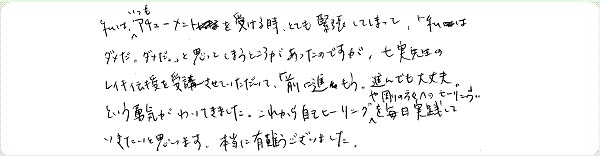 私は、いつもアチューメントを受ける時、とても緊張してしまって、「私は
ダメだ。ダメだ。」と思ってしまうところがあったのですが、七実先生の
レイキ伝授を受講させていただいて、「前に進もう。進んでも大丈夫。」
という勇気がわいてきました。これから自己ヒーリングや周りの方々へのヒーリングを毎日実践して
いきたいと思います。本当に有難うございました。